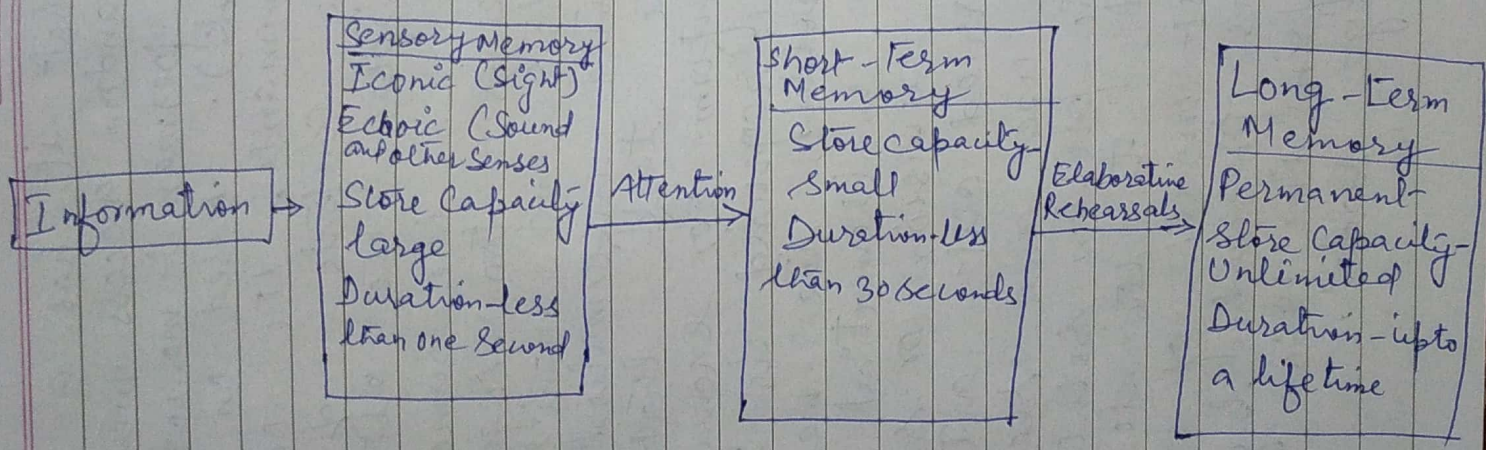 Information
Sensory Memory
Iconic (Sight)
Echoic (Sound
and other senses
Store Capacity
large
Duration-less
than one Second
Attention
Short-Term
Memory
Store capacity-
Small
Duration-less
than 30 seconds
Elaborative
Rehearsals
Long-Term
Memory
Permanent-
Store Capacity-
Unlimited
Duration-upto
a lifetime